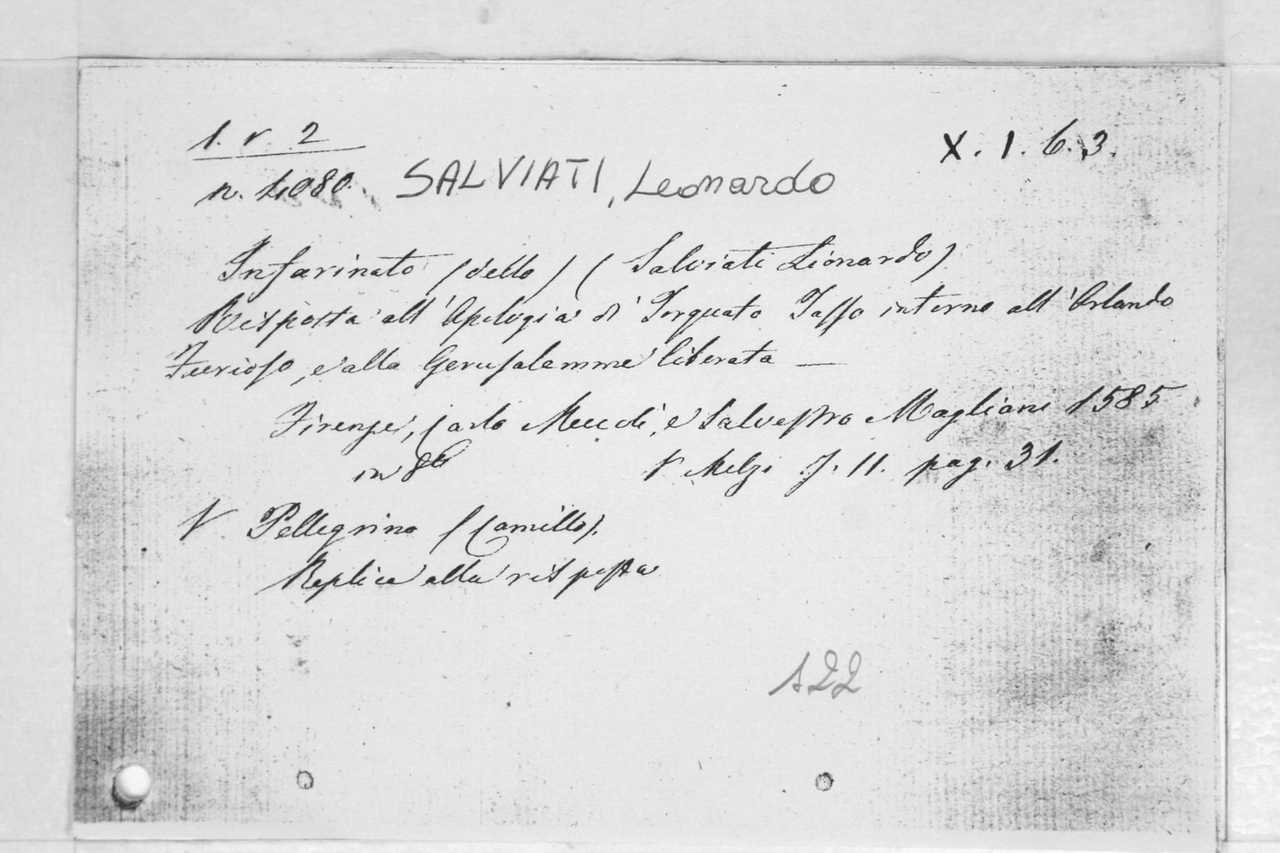 1. v. 2
X. 1. 6. 3.
n. 4080.
SALVIATI, Leonardo
Infarinato (dello) (Salviati Lionardo)
Risposta all'Apologia di Torquato Tasso intorno all'Orlando
Furioso, e alla Gerusalemme liberata —
Firenze, Carlo Meccoli, e Salvestro Magliani 1585
in 8º V Melzi T. 11. pag. 31.
V Pellegrino (Camillo).
Replica alla risposta
122